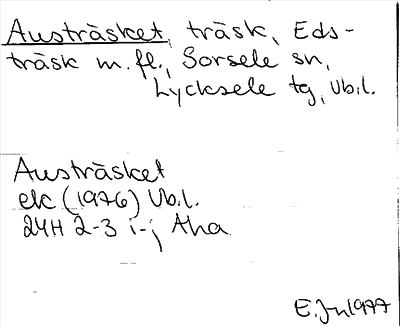 Austräsket, träsk, Eds-
träsk m.fl., Sorsele sn,
Lycksele tg, Vb.l.
Austräsket
ek (1976) Vb.l.
24H 2-3 i-j Aha
E.Jn 1977